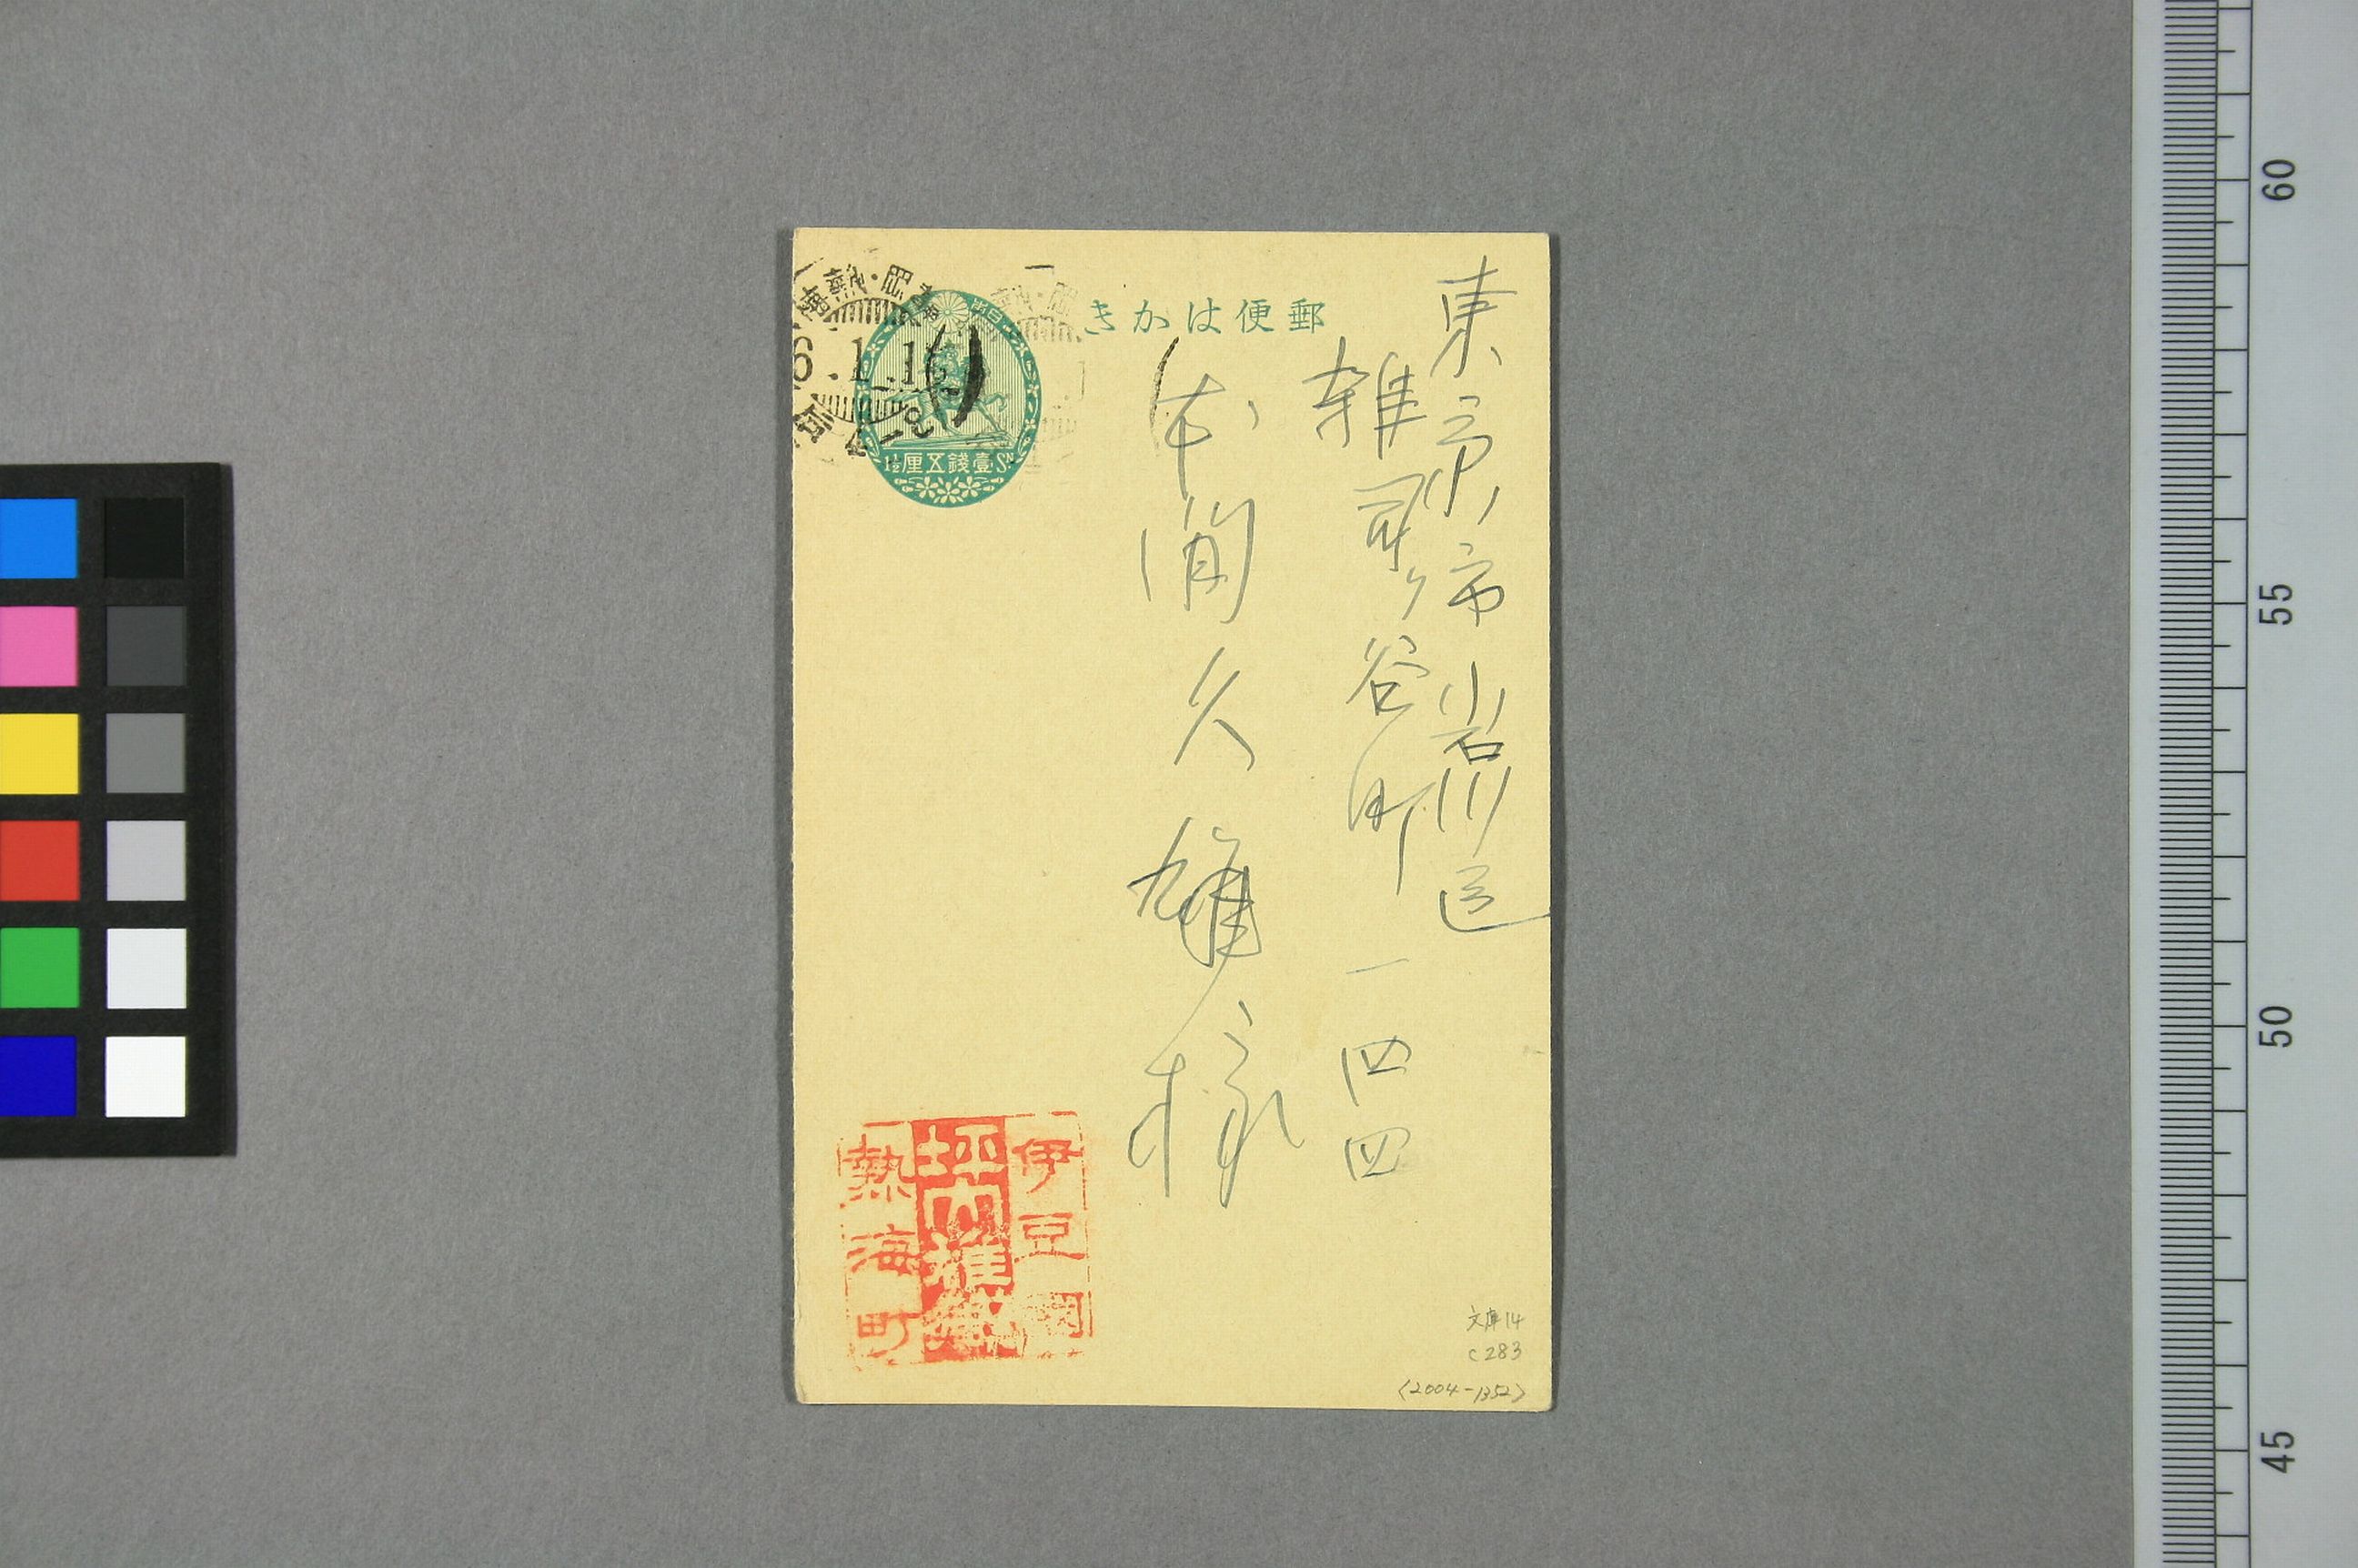 郵便はかき
東京市小石川区
雑司ヶ谷町一四四
本間久雄様
静岡・熱海
6.1.1
壹銭五厘
1½ Sn
伊豆国
坪内雄蔵
熱海町
文庫14
C283
〈2004-1352〉
60
55
50
45